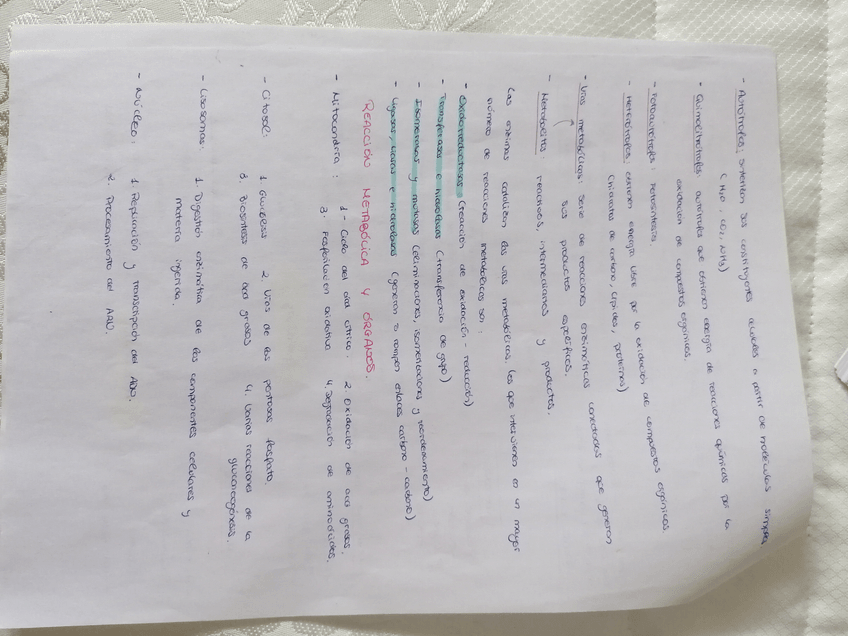 - Autótrofos: sintetizan sus constituyentes celulares a partir de moléculas simples
(H2O, CO2, NH3)
- Quimiolitótrofos: autótrofos que obtienen energía de reacciones químicas por la
oxidación de compuestos orgánicos.
- Fotoautótrofos: Fotosíntesis.
- Heterótrofos: obtienen energía libre por la oxidación de compuestos orgánicos
(Hidratos de carbono, lípidos, proteínas)
- Vías metabólicas: serie de reacciones enzimáticas conectadas que generan
sus productos específicos.
- Metabolitos: reactivos, intermediarios y productos.
Las enzimas catalizan las vías metabólicas. Las que intervienen en un mayor
número de reacciones metabólicas son:
- Oxidorreductasas (reacción de oxidación - reducción)
- Transferasas e hidrolasas (transferencia de grupo)
- Isomerasas y mutasas (eliminaciones, isomerizaciones y reordenamiento)
- Ligasas, liasas e hidrolasas (generan o rompen enlaces carbono - carbono)
REACCIÓN METABÓLICA Y ÓRGANOS.
- Mitocondria: 1- Ciclo del ácid cítrico. 2. Oxidación de acd grasos.
3. Fosforilación oxidativa 4. Degradación de aminoácidos.
- Citosol: 1. Glucólisis 2. Vías de las pentosas fosfato.
3. Biosíntesis de acd grasos 4. Varias reacciones de la
gluconeogénesis.
- Lisosomas: 1. Digestión enzimática de los componentes celulares y
materia ingerida.
- Núcleo: 1. Replicación y transcripción del ADN.
2. Procesamiento del ARN